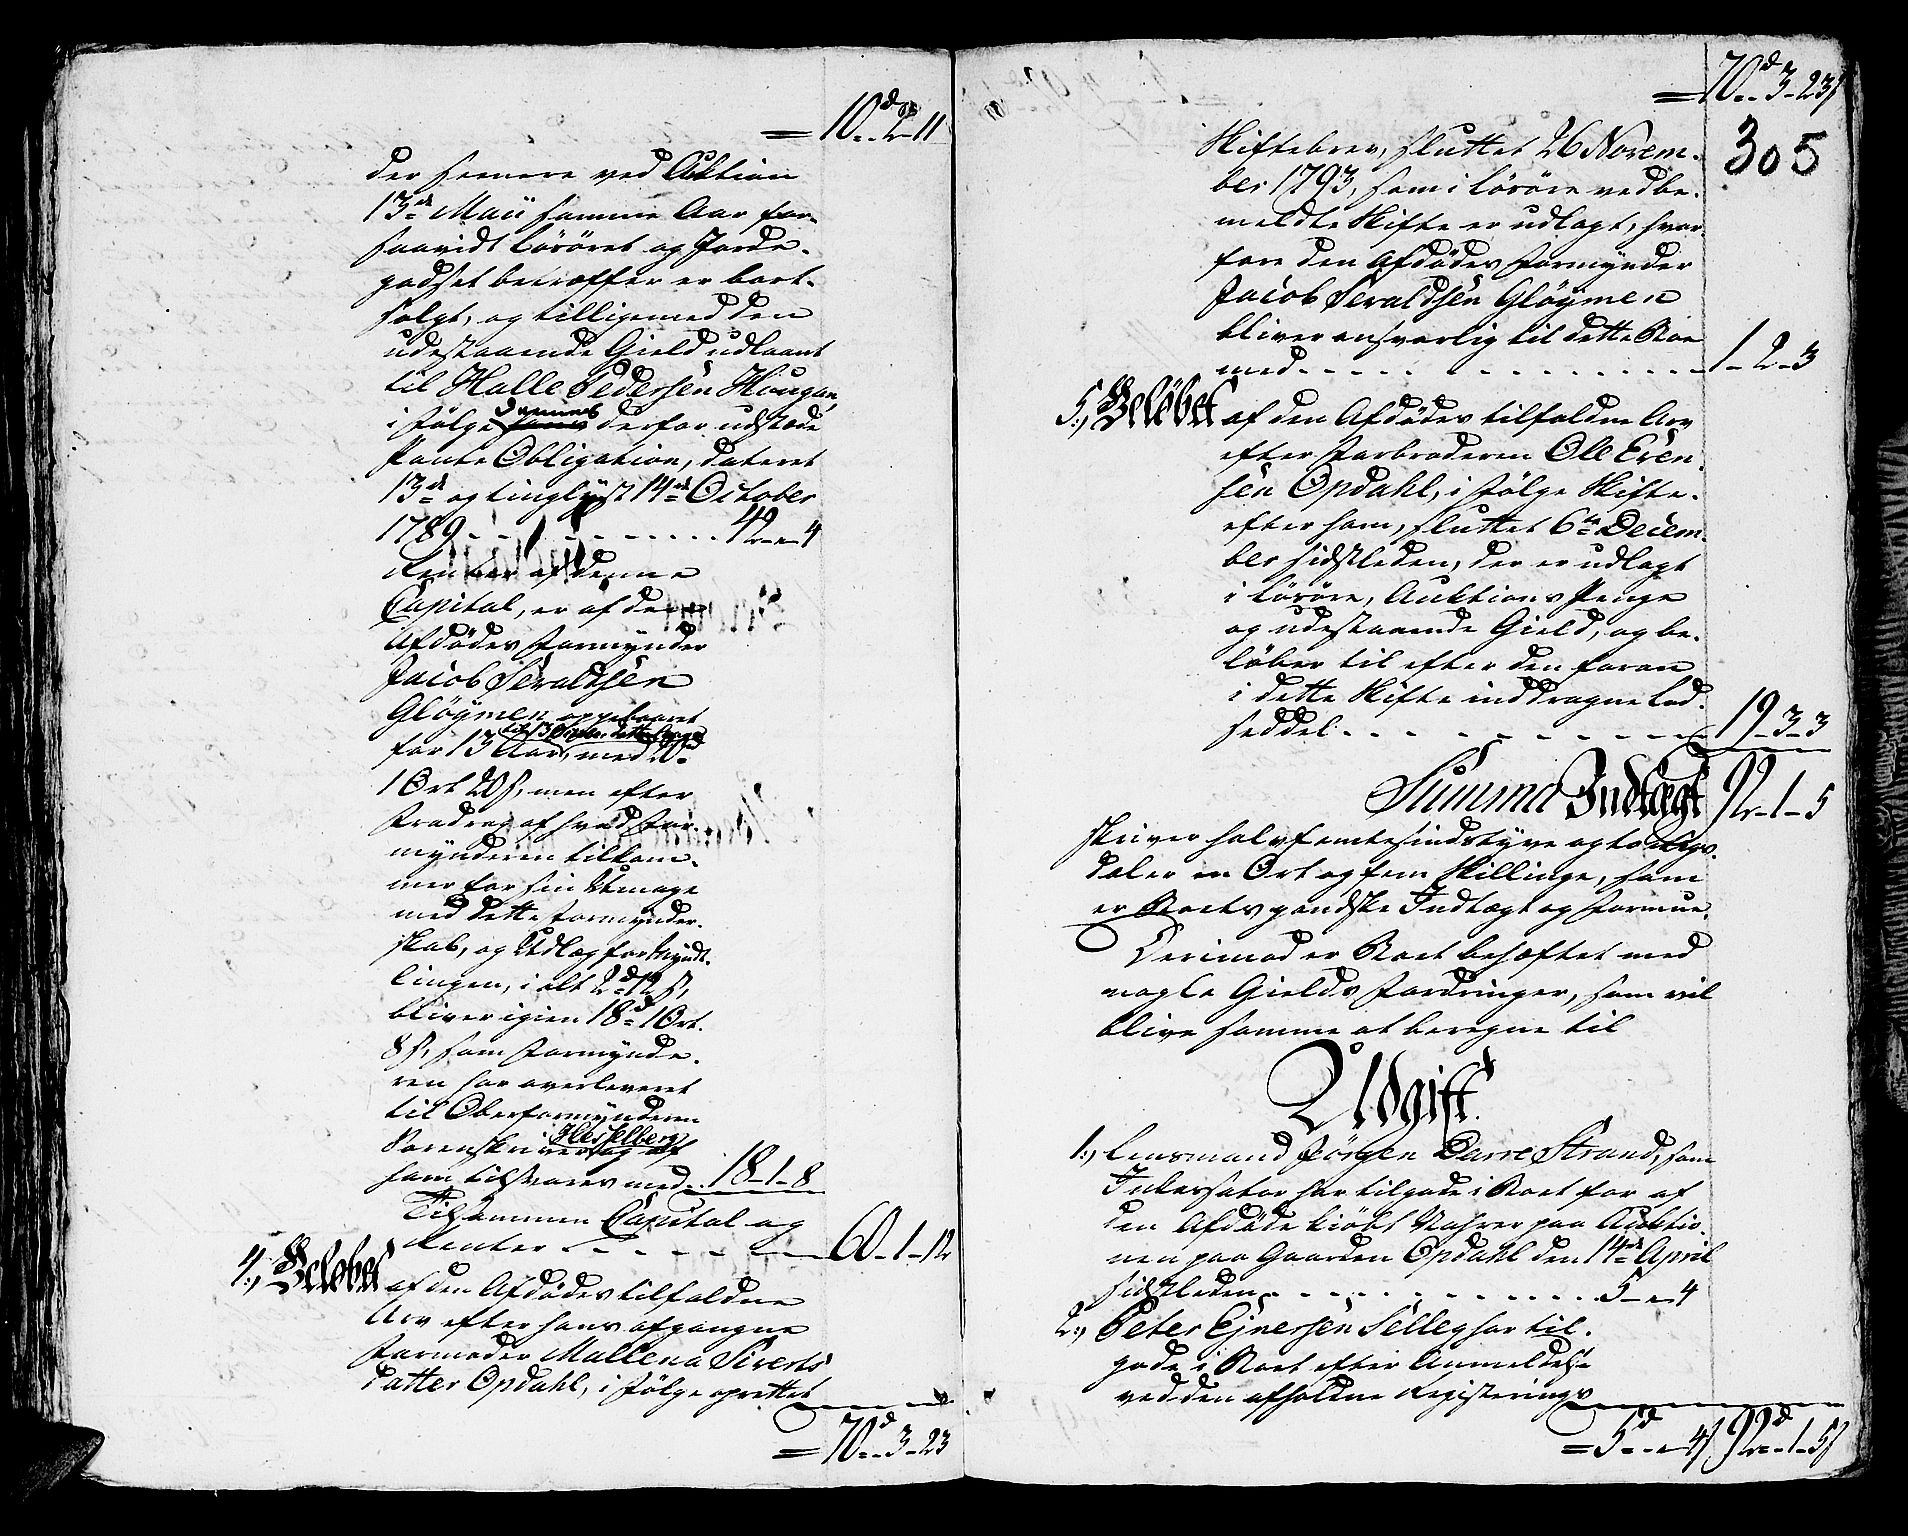 = 10d 2-11
der senere ved Auktion
13de Maii samme Aar for-
saavidt Løsøret og Jorde-
godset betræffer er bort-
solgt, og tilligemed den
udestaaende Gield udlaant
til Halle Pedersen Hougan,
i følge dennes derfor udstæde
Pante Obligation, dateret
13de og tinglyst 14de October
1789 . . . . . . . . . 42-"-4
Renter af denne
Capital, er af den
Afdødes Formynder
Jacob Seraldsen
Gløymen oppebaaret
for 13 Aar, med 20d
1 Ort 20 s, men efter
Fradrag af hvad For-
mynderen tilkom-
mer for sin Umage
med dette Formynder-
skab, og Udlæg for Mÿndt-
lingen, i alt 2d 12 s,
bliver igien 18d 1 Ort
8 s, som Formynde-
ren har overleveret
til Oberformynderen
Sorenskriver Hesselberg, og af
ham tilsvares med . . 18-1-8
Tilsammen Capital og
Renter . . . . . . 60-1-12
4., Beløbet af den Afdødes tilfaldne
Arv efter hans afgangne
Farmoder Mallena Siverts
datter Opdahl, i følge oprettet
= 70d 3-23
= 70d 3-23s
305
Skiftebrev, sluttet 26 Novem-
ber 1793, som i Løsøre ved be-
meldte Skifte er udlagt, hvor-
fore den Afdødes Formynder
Jacob Seraldsen Gløymen
bliver ansvarlig til dette Boe
med . . . . . . . . . 1-2-3
5., Beløbet af den Afdødes tilfaldne Arv
efter Farbroderen Ole Eren-
sen Opdahl, i følge Skifte-
efter ham, sluttet 6te Decem-
ber sidstleden, der er udlagt
i Løsøre, Auktions Penge
og udestaaende Gield, og be-
løber til efter den foran
i dette Skifte inddragne Lod-
seddel . . . . . . . . 19-3-3
Summa Indtægt 92-1-5
skriver halvfemtesindstyve og to Rigs-
daler en Ort og fem Skillinge, som
er Boets gandske Indtægt og Formue.
Derimod er Boet behæftet med
nogle Gields Fordringer, som vil
blive samme at beregne til
Udgift.
1., Lensmand Jørgen Darre Strand, som
Inkassator har tilgode i Boet for af
den Afdøde kiøbt Vahrer paa Auktio-
nen paa Gaarden Opdahl den 14de April
sidstleden . . . . . . . . 5-"-4
2., Peter Ejnersen Selleg har til-
gode i Boet efter Anmeldelse
ved den afholdne Registerings
= 5d "-4s 92d-1-5s